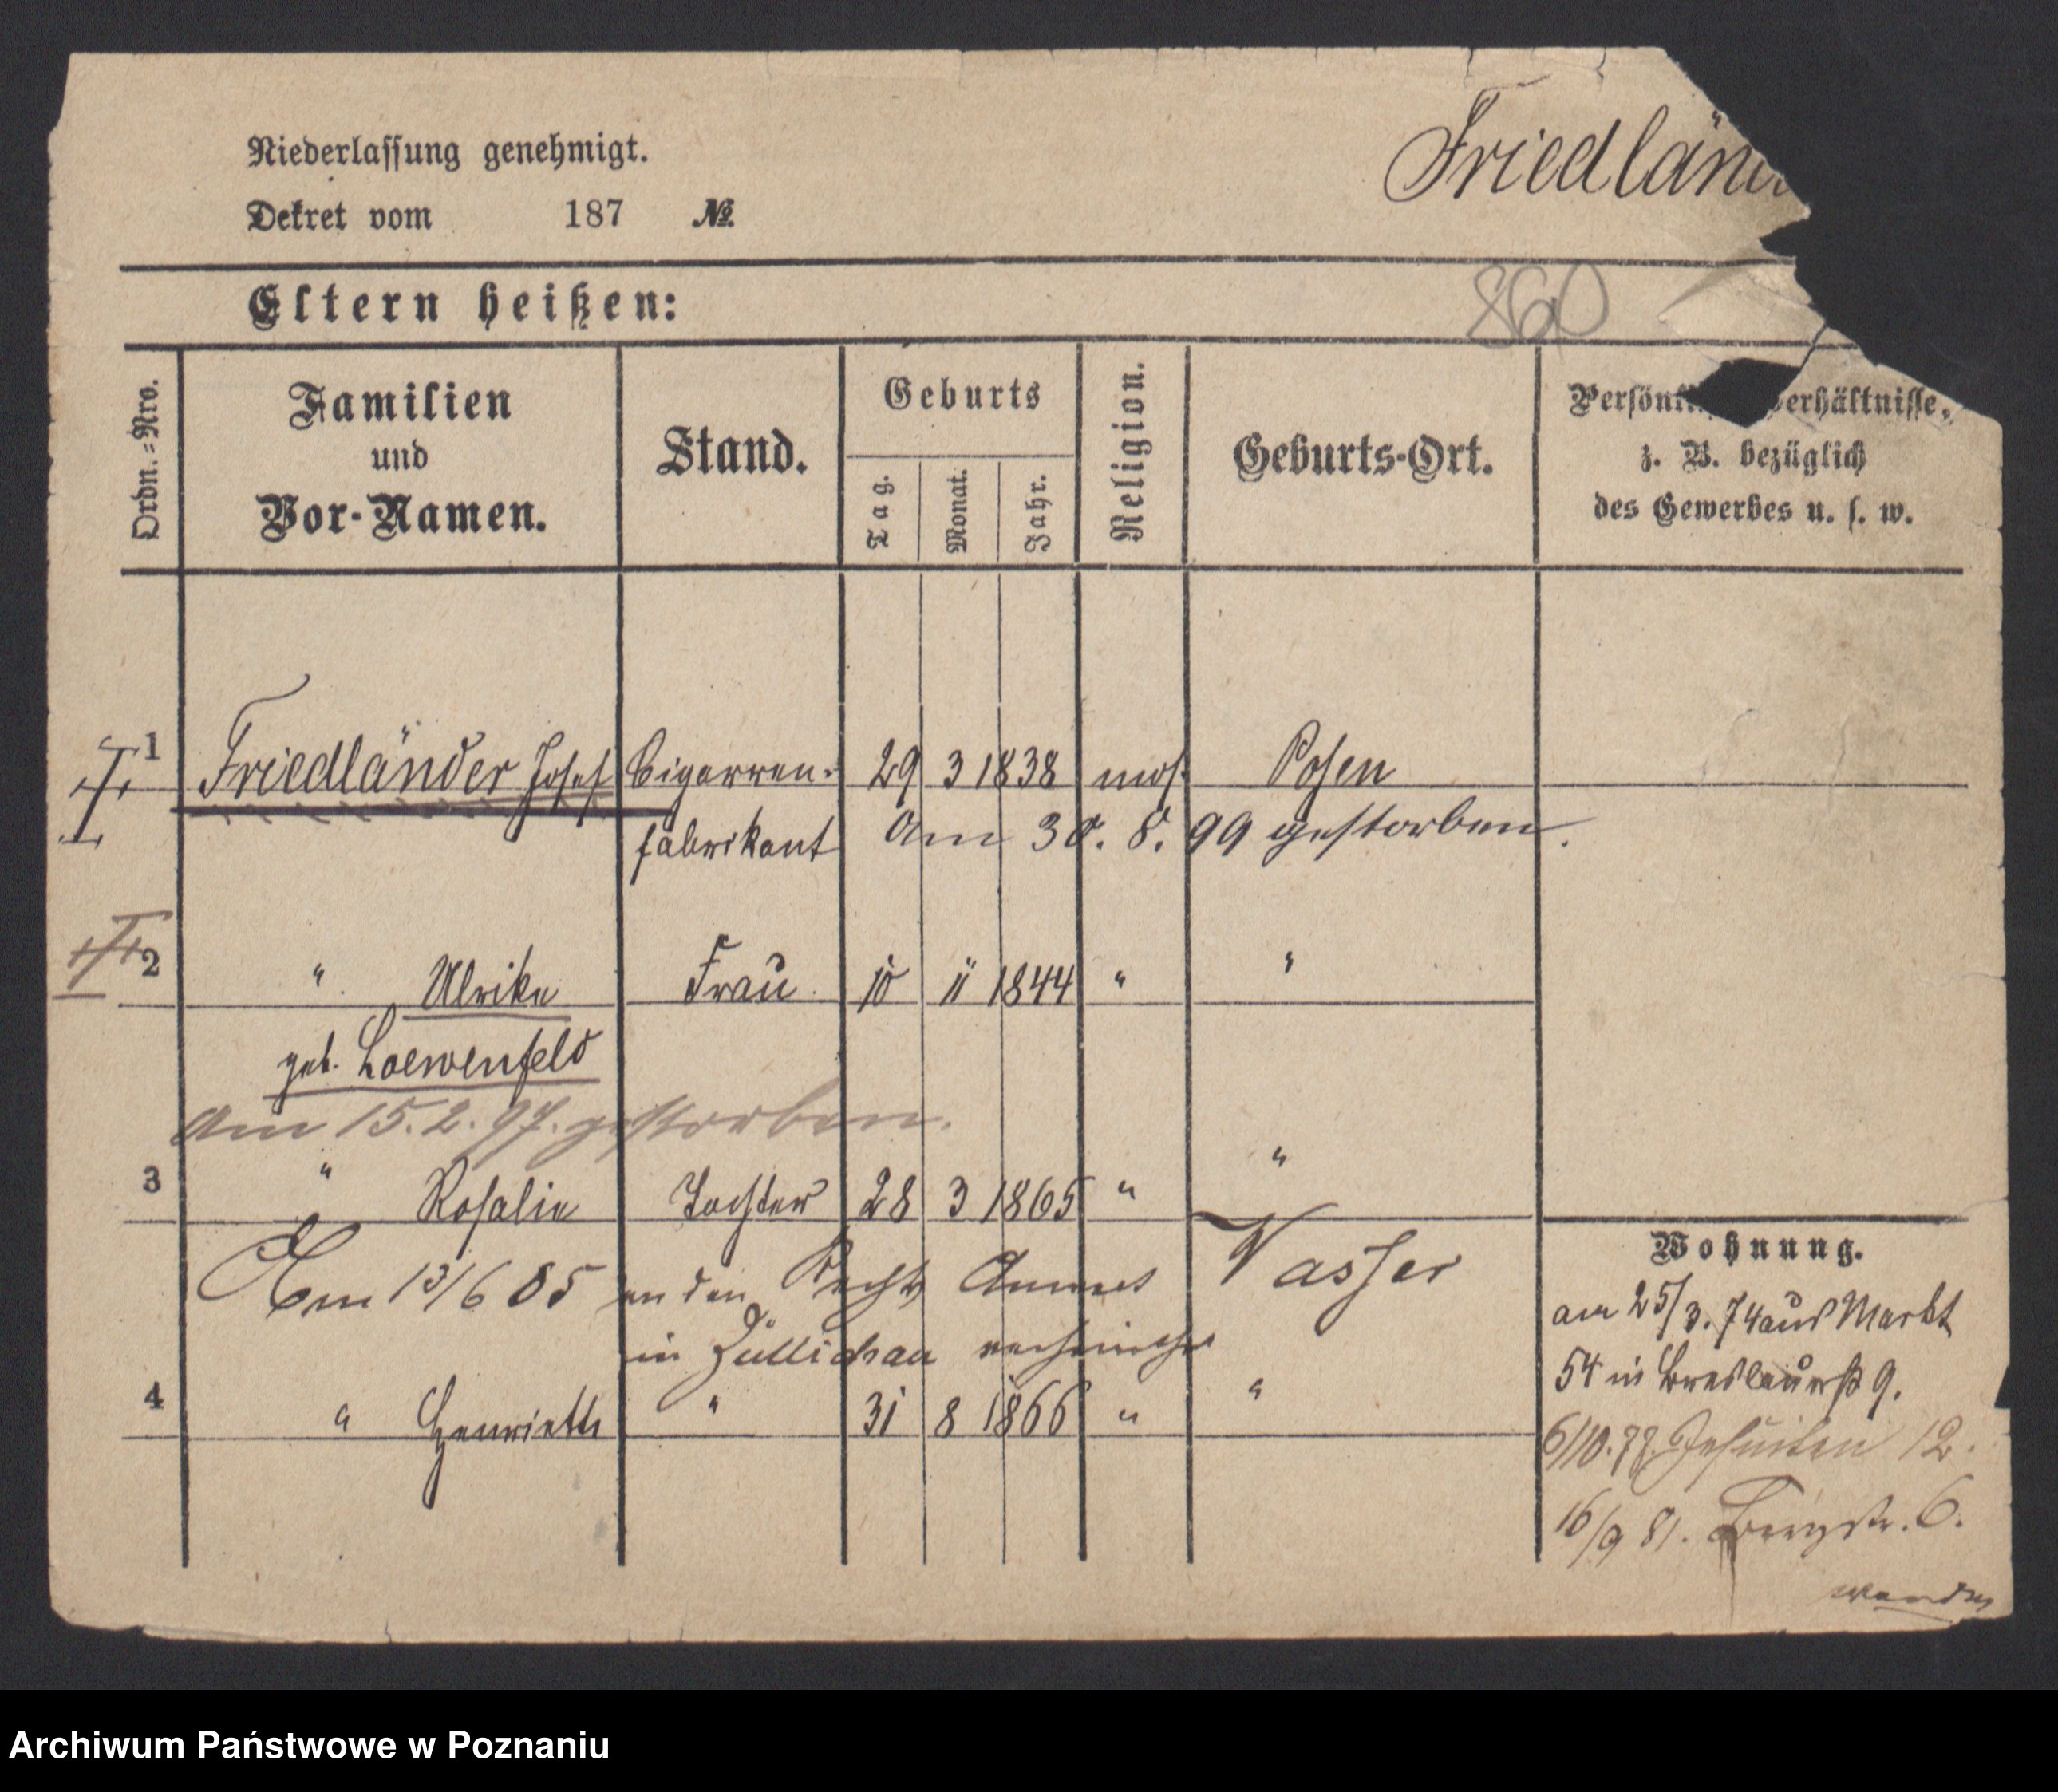 Niederlassung genehmigt.
Dekret vom 187 №
Friedländ
Eltern heißen:
860
Ordn.=Nro.
Familien
und
Vor-Namen.
Stand.
Geburts
Tag. Monat. Jahr.
Religion.
Geburts-Ort.
Persönl erhältnisse,
z. B. bezüglich
des Gewerbes u. s. w.
1 Friedländer Josef Cigarren- 29 3 1838 mos. Posen
fabrikant am 30. 8. 99 gestorben.
2 " Ulrike Frau 10 11 1844 " "
geb. Loewenfeld
am 15. 2. 97. gestorben.
3 " Rosalie Tochter 28 3 1865 " "
Am 13/6 85 an den Rechts Anwalt Vasser
in Züllichau verheirathet
4 " Henriette " 31 8 1866 " "
Wohnung.
am 25/3. 74 aus Markt
54 in Breslauerstr 9.
6/10. 77. Jesuiten 12.
16/9 81. Bergstr. 6.
Archiwum Państwowe w Poznaniu